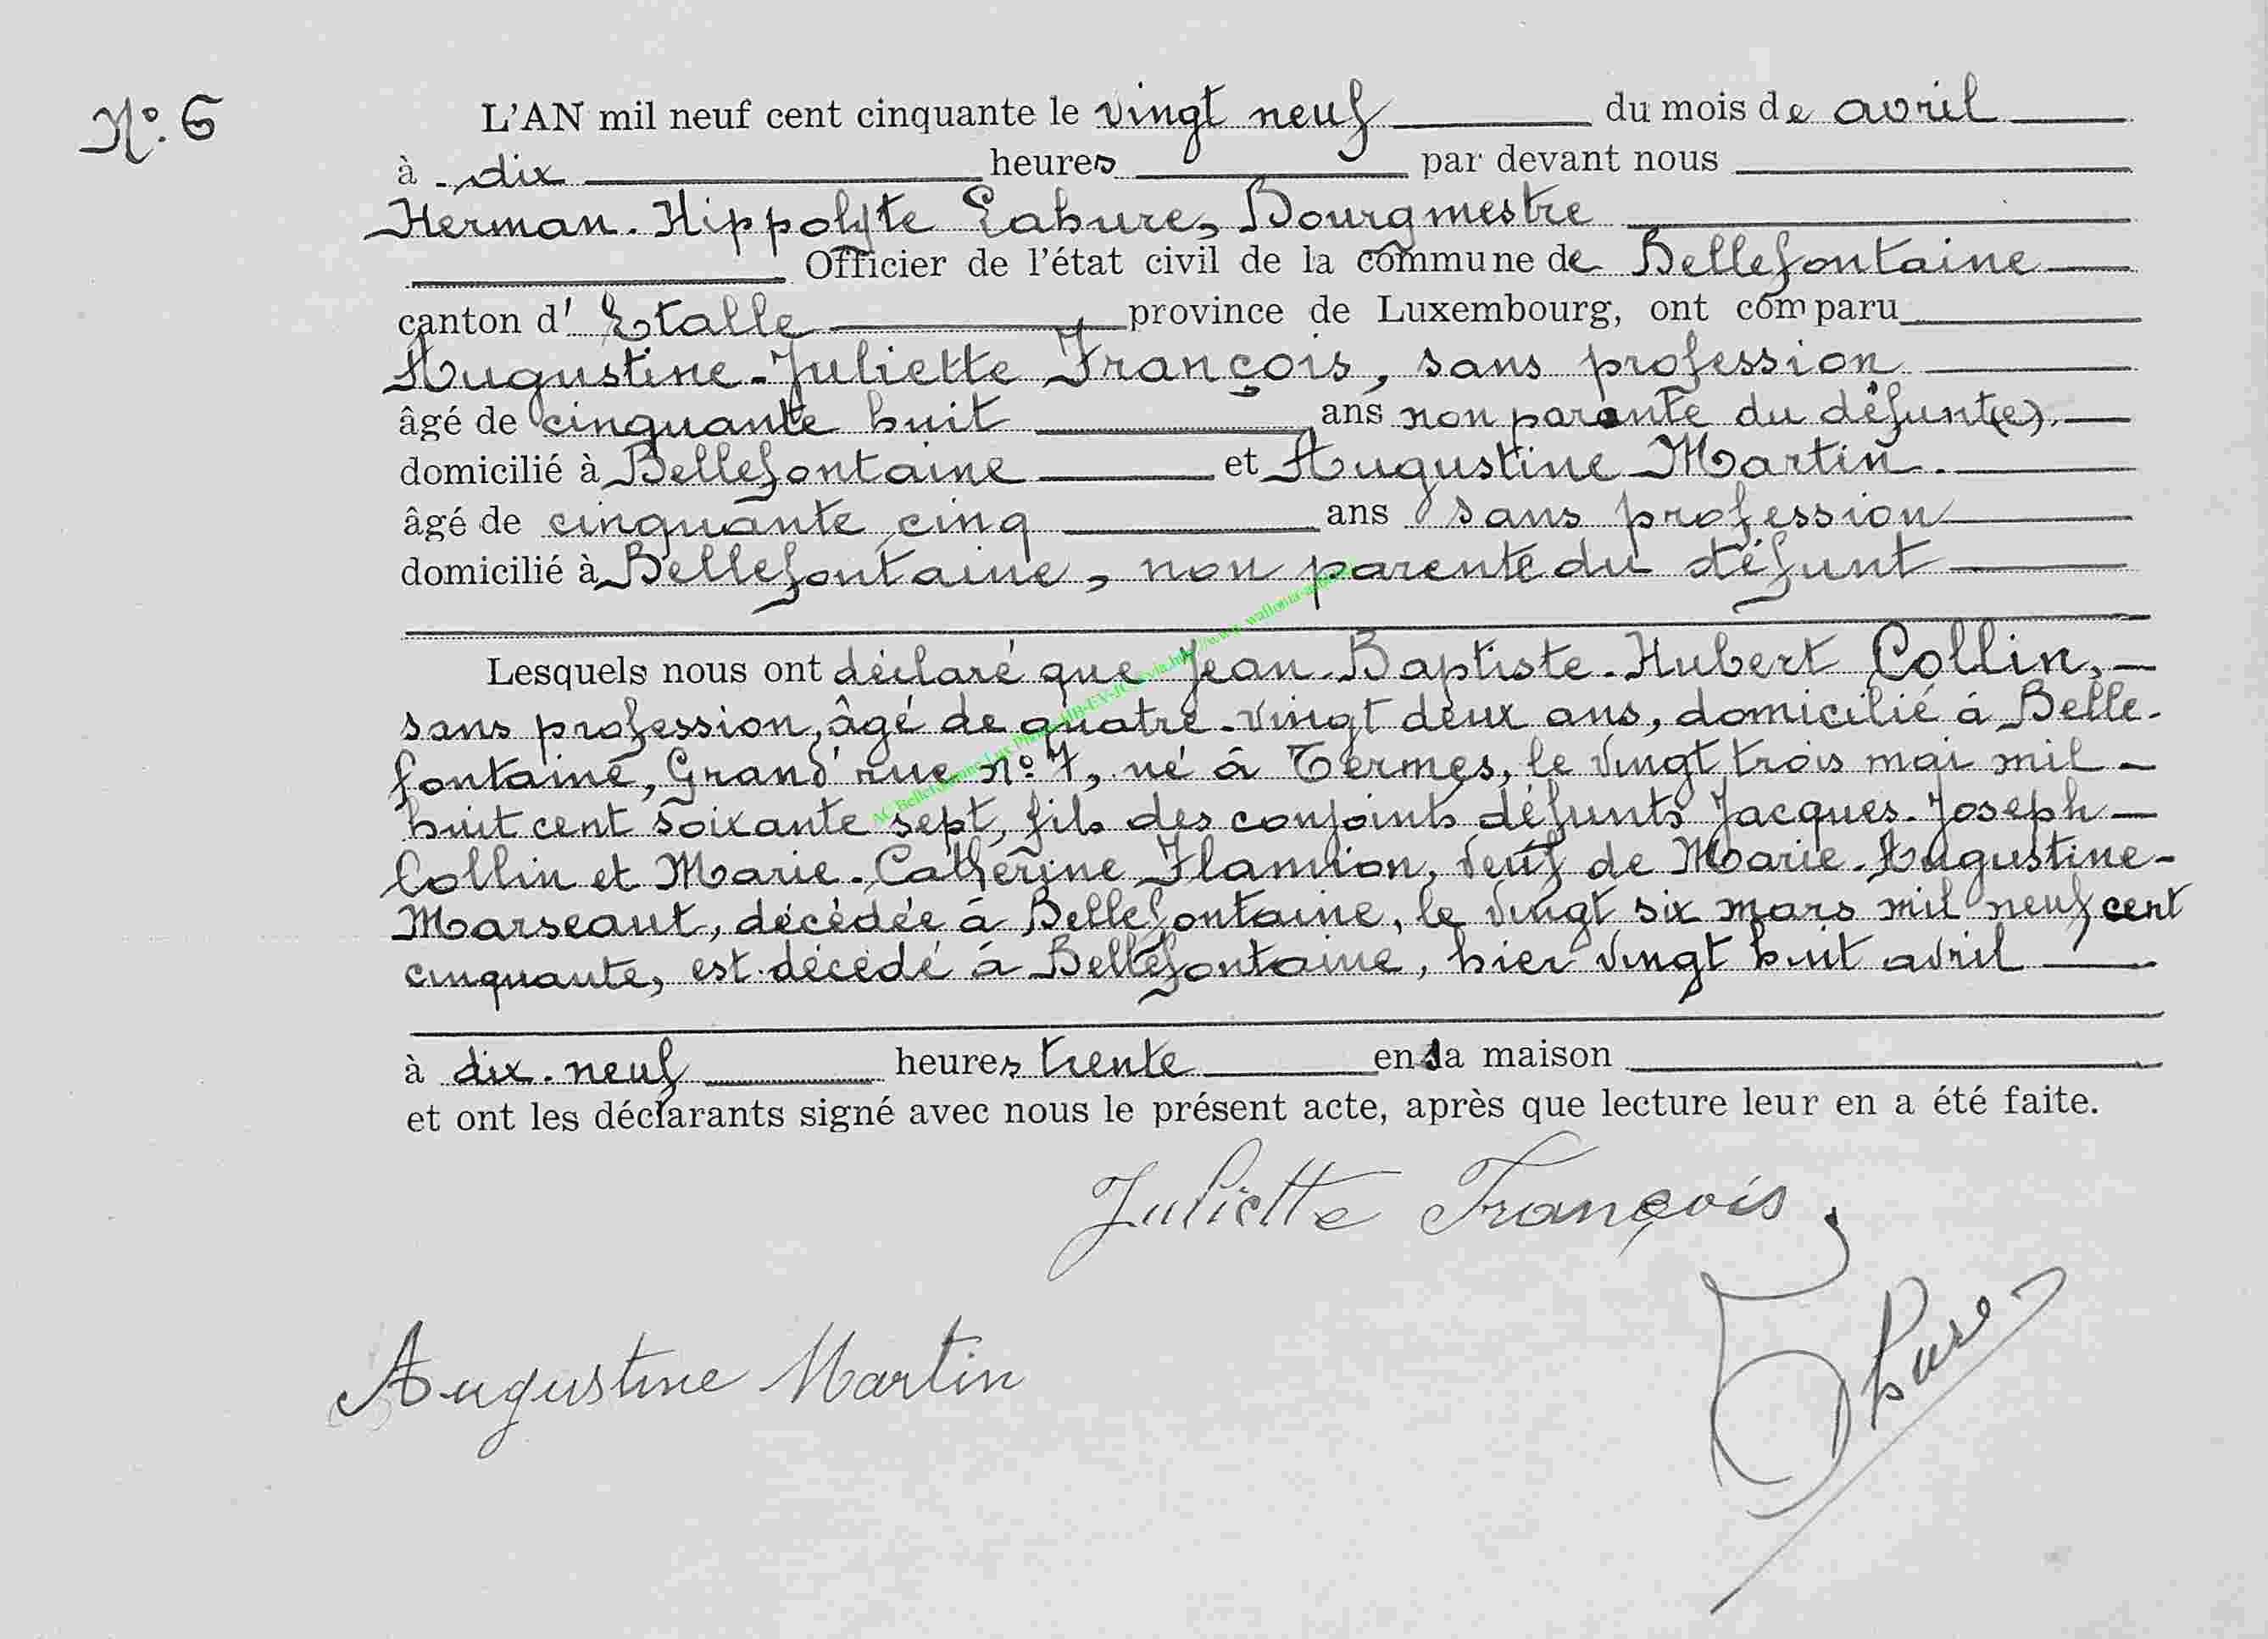 N° 6
L'AN mil neuf cent cinquante le vingt neuf du mois de avril
à dix heures par devant nous
Herman-Hippolyte Lahure, Bourgmestre
Officier de l'état civil de la commune de Bellefontaine
canton d' Etalle province de Luxembourg, ont comparu
Augustine-Juliette François, sans profession
âgé de cinquante huit ans non parente du défunt(e).
domicilié à Bellefontaine et Augustine Martin.
âgé de cinquante cinq ans sans profession
domicilié à Bellefontaine, non parente du défunt
Lesquels nous ont déclaré que Jean-Baptiste-Hubert Collin,
sans profession, âgé de quatre-vingt deux ans, domicilié à Belle-
fontaine, Grand'rue n° 7, né à Termes, le vingt trois mai mil
huit cent soixante sept, fils des conjoints défunts Jacques-Joseph
Collin et Marie-Catherine Flamion, veuf de Marie-Augustine-
Marseaut, décédée à Bellefontaine, le vingt six mars mil neuf cent
cinquante, est décédé à Bellefontaine, hier vingt huit avril
à dix-neuf heures trente en sa maison
et ont les déclarants signé avec nous le présent acte, après que lecture leur en a été faite.
Juliette François
Lahure
Augustine Martin